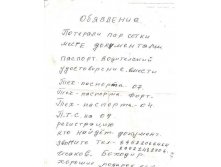 Обявления
Потеряли пар сетки
месте документами
паспорт водителский
удостоверение. вмести
Тех-паспорта 07
Тех-паспорта форт.
Тех-паспорта-04
П.Т.С. на 07
регистрацию
кто найдёт документ.
звоните тел-
Исаков. Боходир.